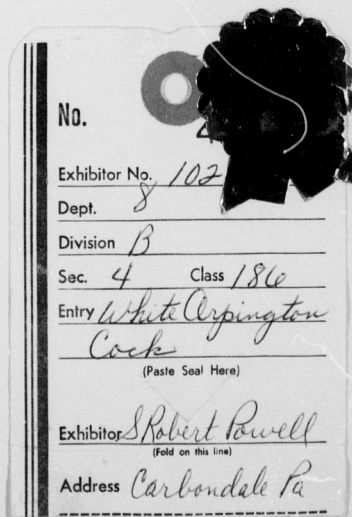 No. 4
Exhibitor No. 102
Dept. 8
Division B
Sec. 4 Class 186
Entry White Orpington
Cock
(Paste Seal Here)
Exhibitor S Robert Powell
(Fold on this line)
Address Carbondale Pa